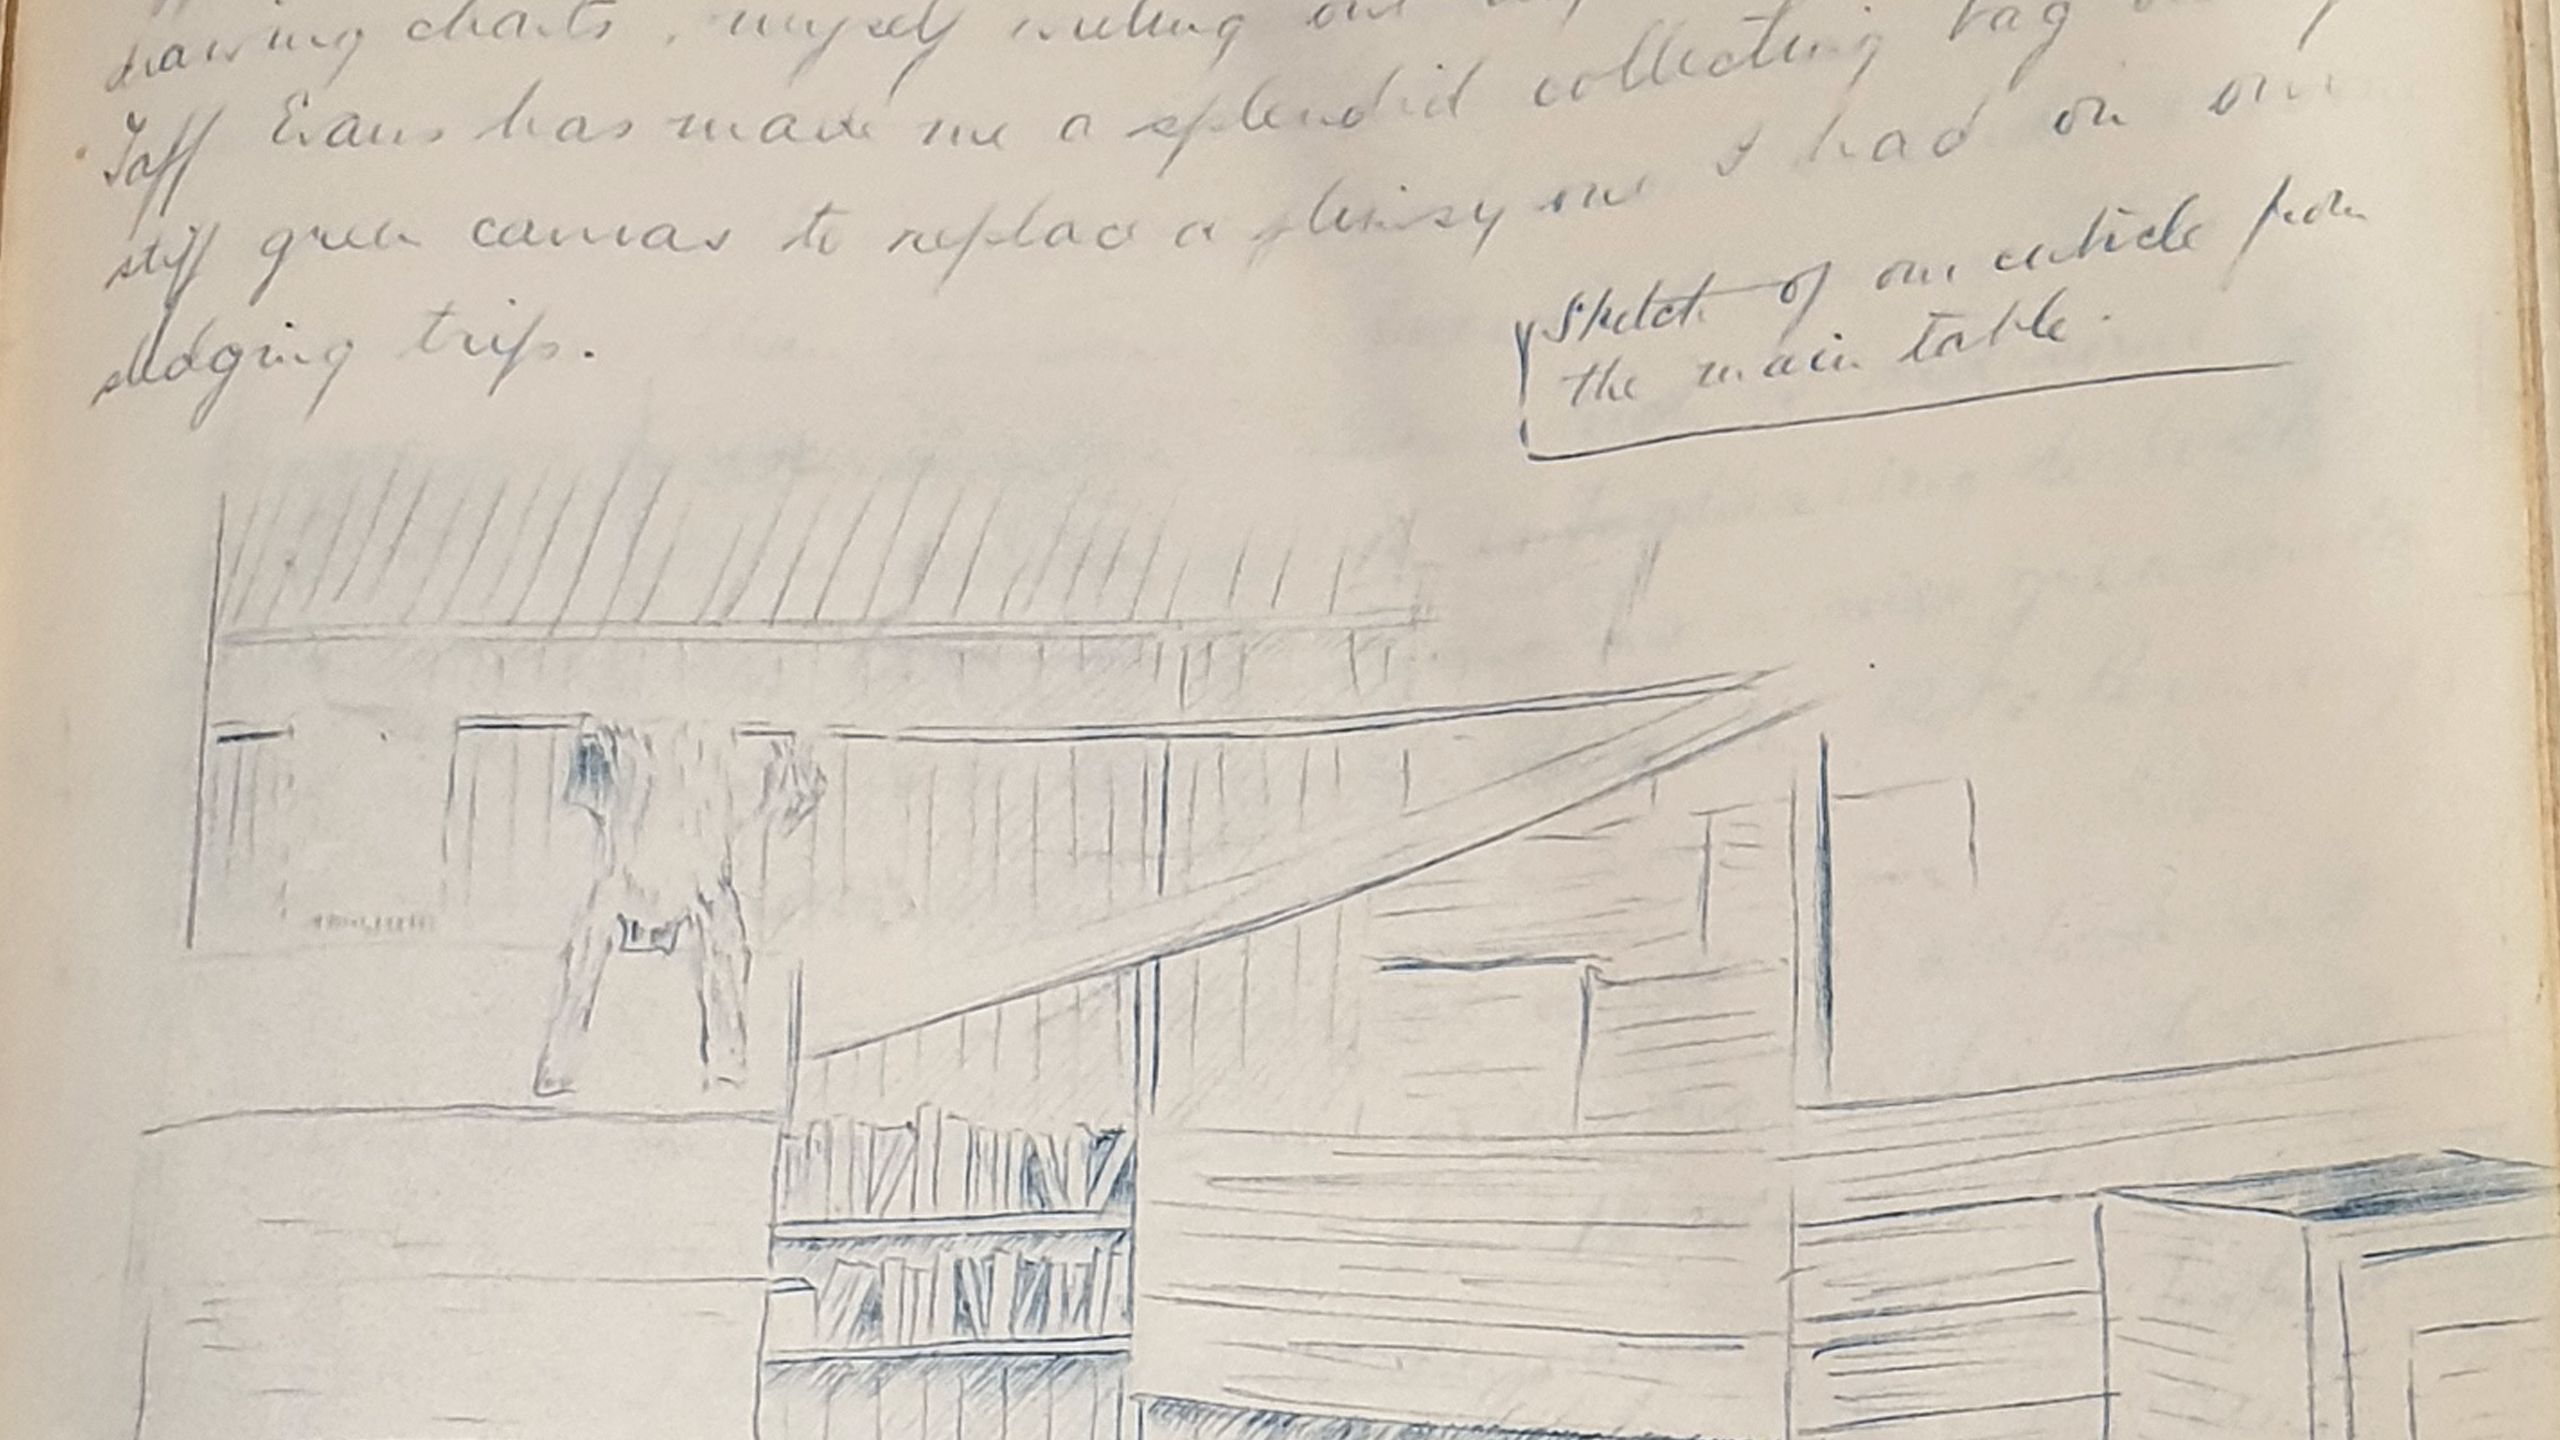 drawing charts, myself writing out
Taff Evans has made me a splendid collecting bag
stiff green canvas to replace a flimsy one I had on our
sledging trip.
Sketch of our cubicle from
the main table.